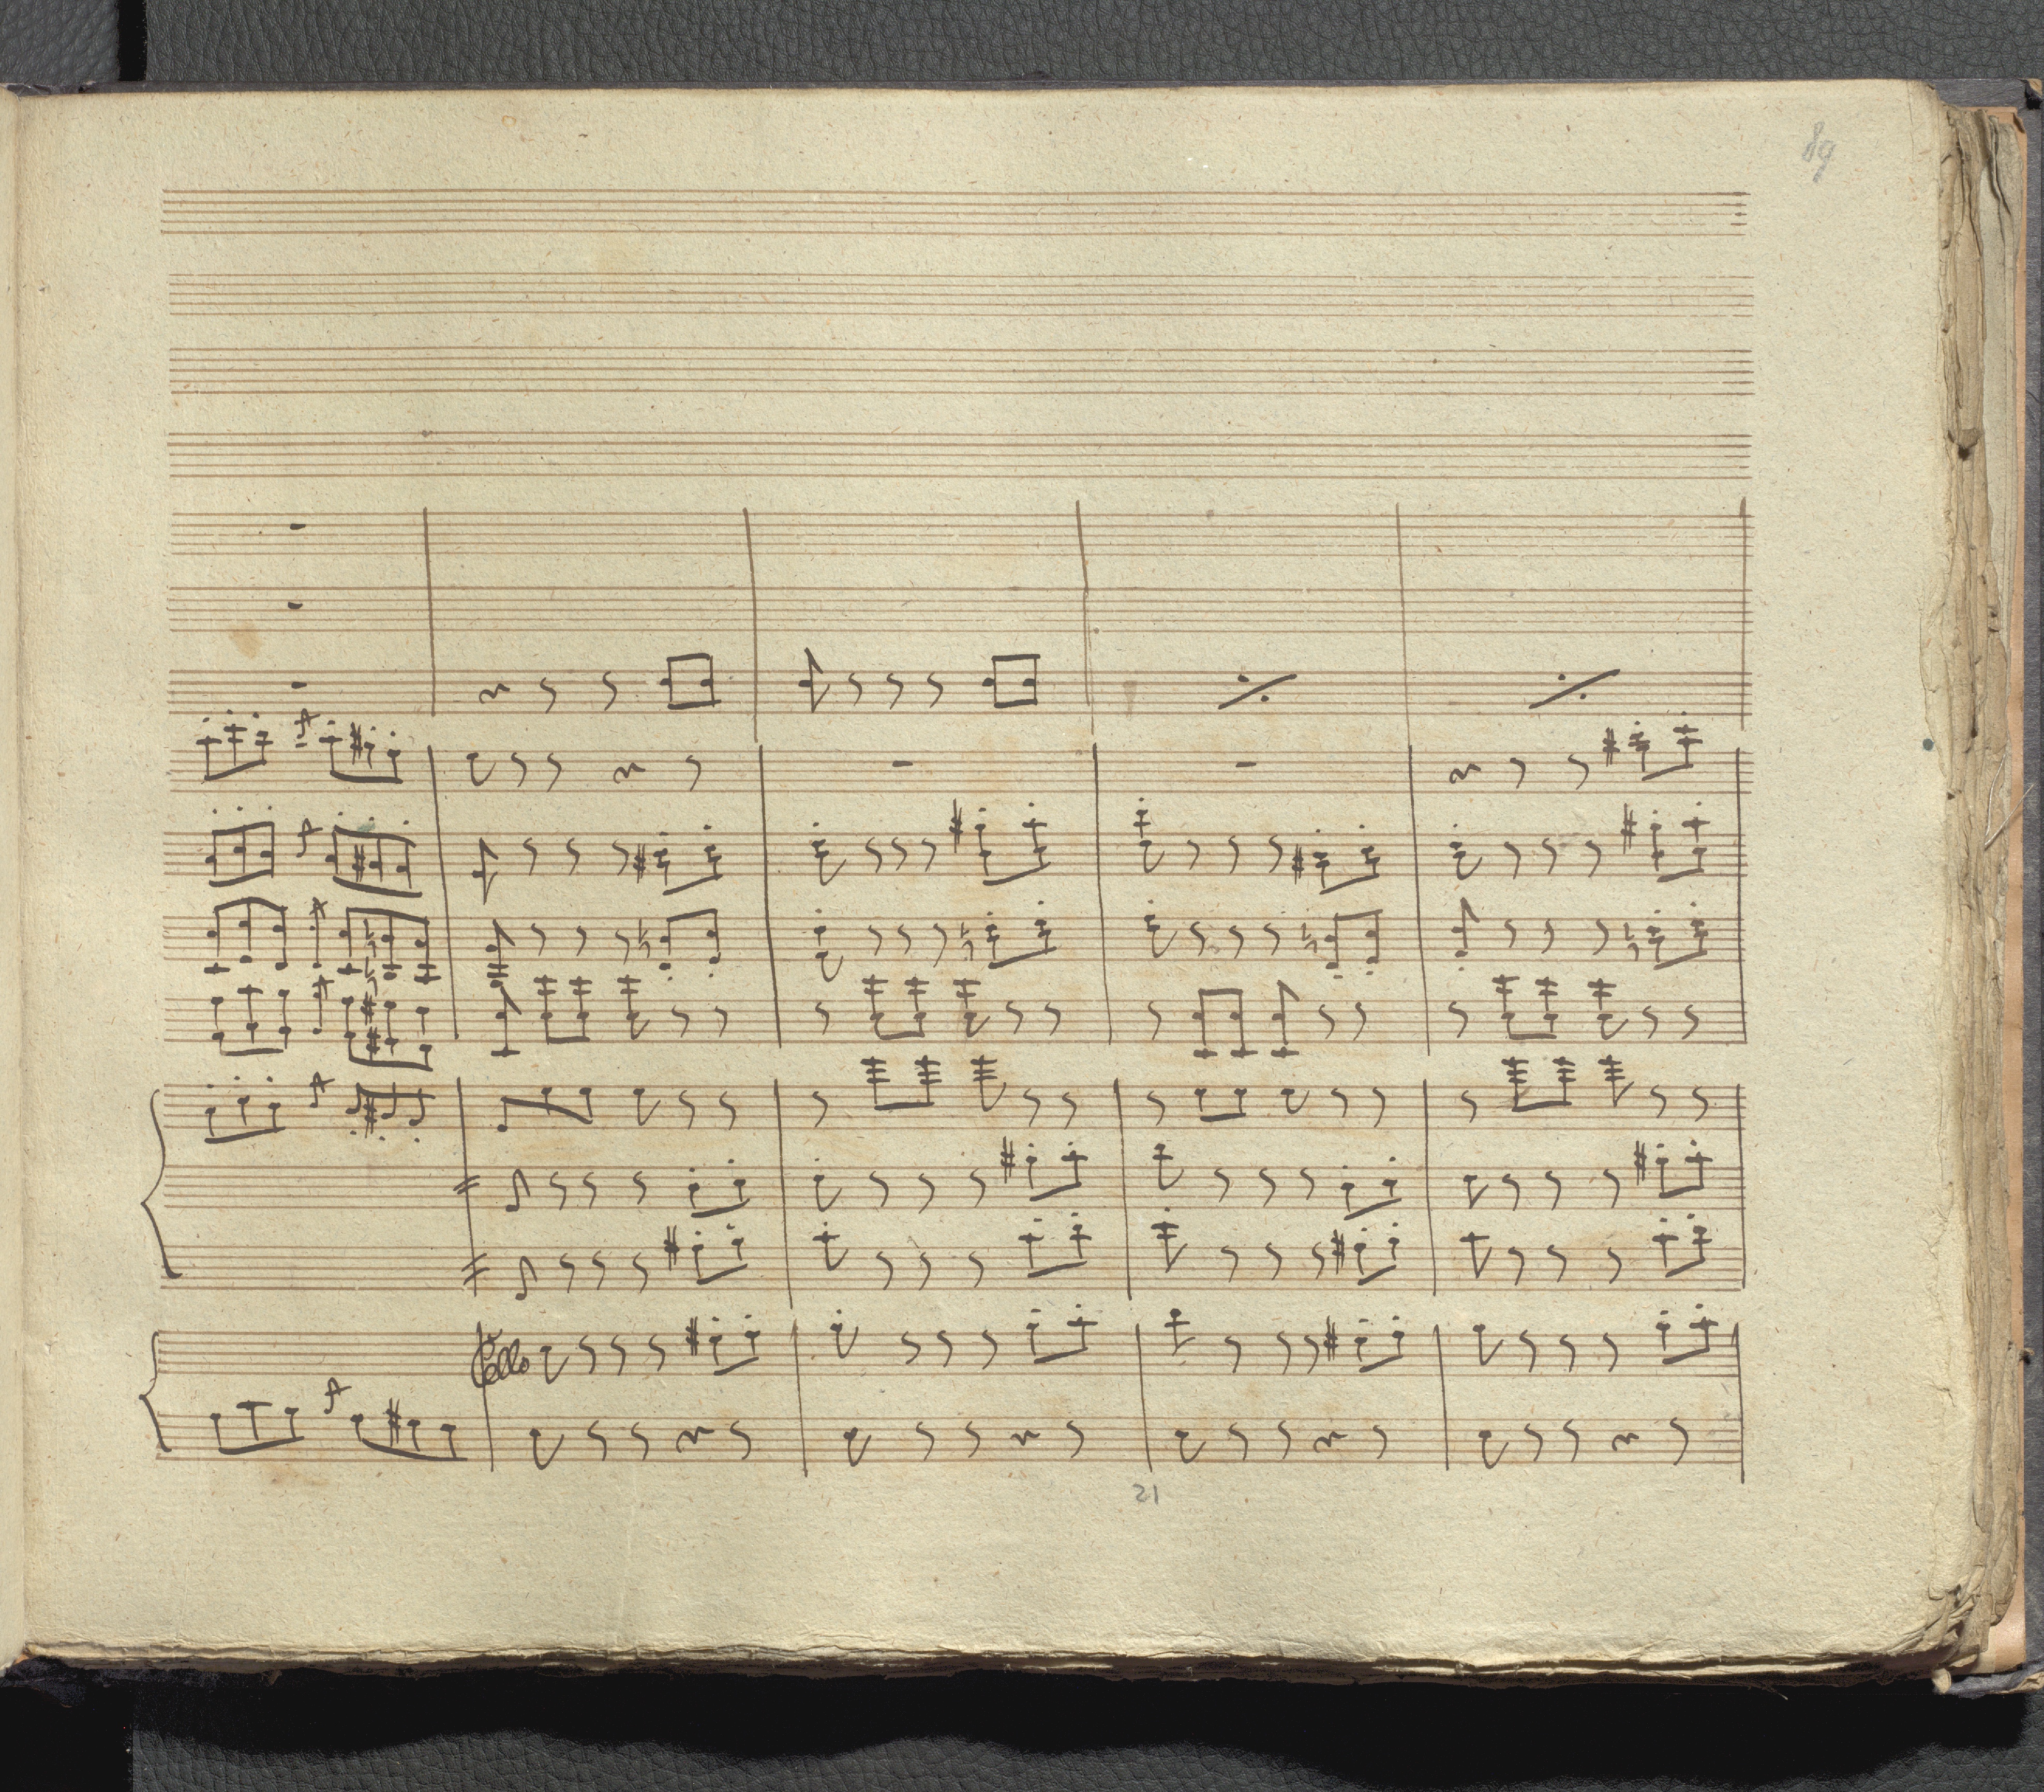 89
Cello
21